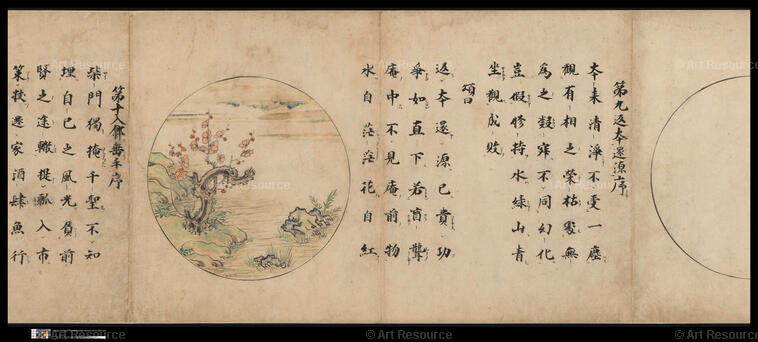 第九返本還源序
本来清淨不受一塵
觀有相之榮枯處無
爲之凝寂不同幻化
豈假修持水緑山青
坐觀成敗
頌曰
返本還源已費功
爭如直下若盲聾
庵中不見庵前物
水自茫茫花自紅
第十入鄽垂手序
柴門獨掩千聖不知
埋自己之風光負前
賢之途轍提瓢入市
策杖還家酒肆魚行
© Art Resource